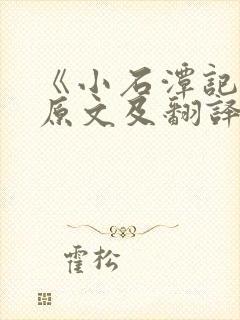 《小石潭記
原文及翻譯
霍松